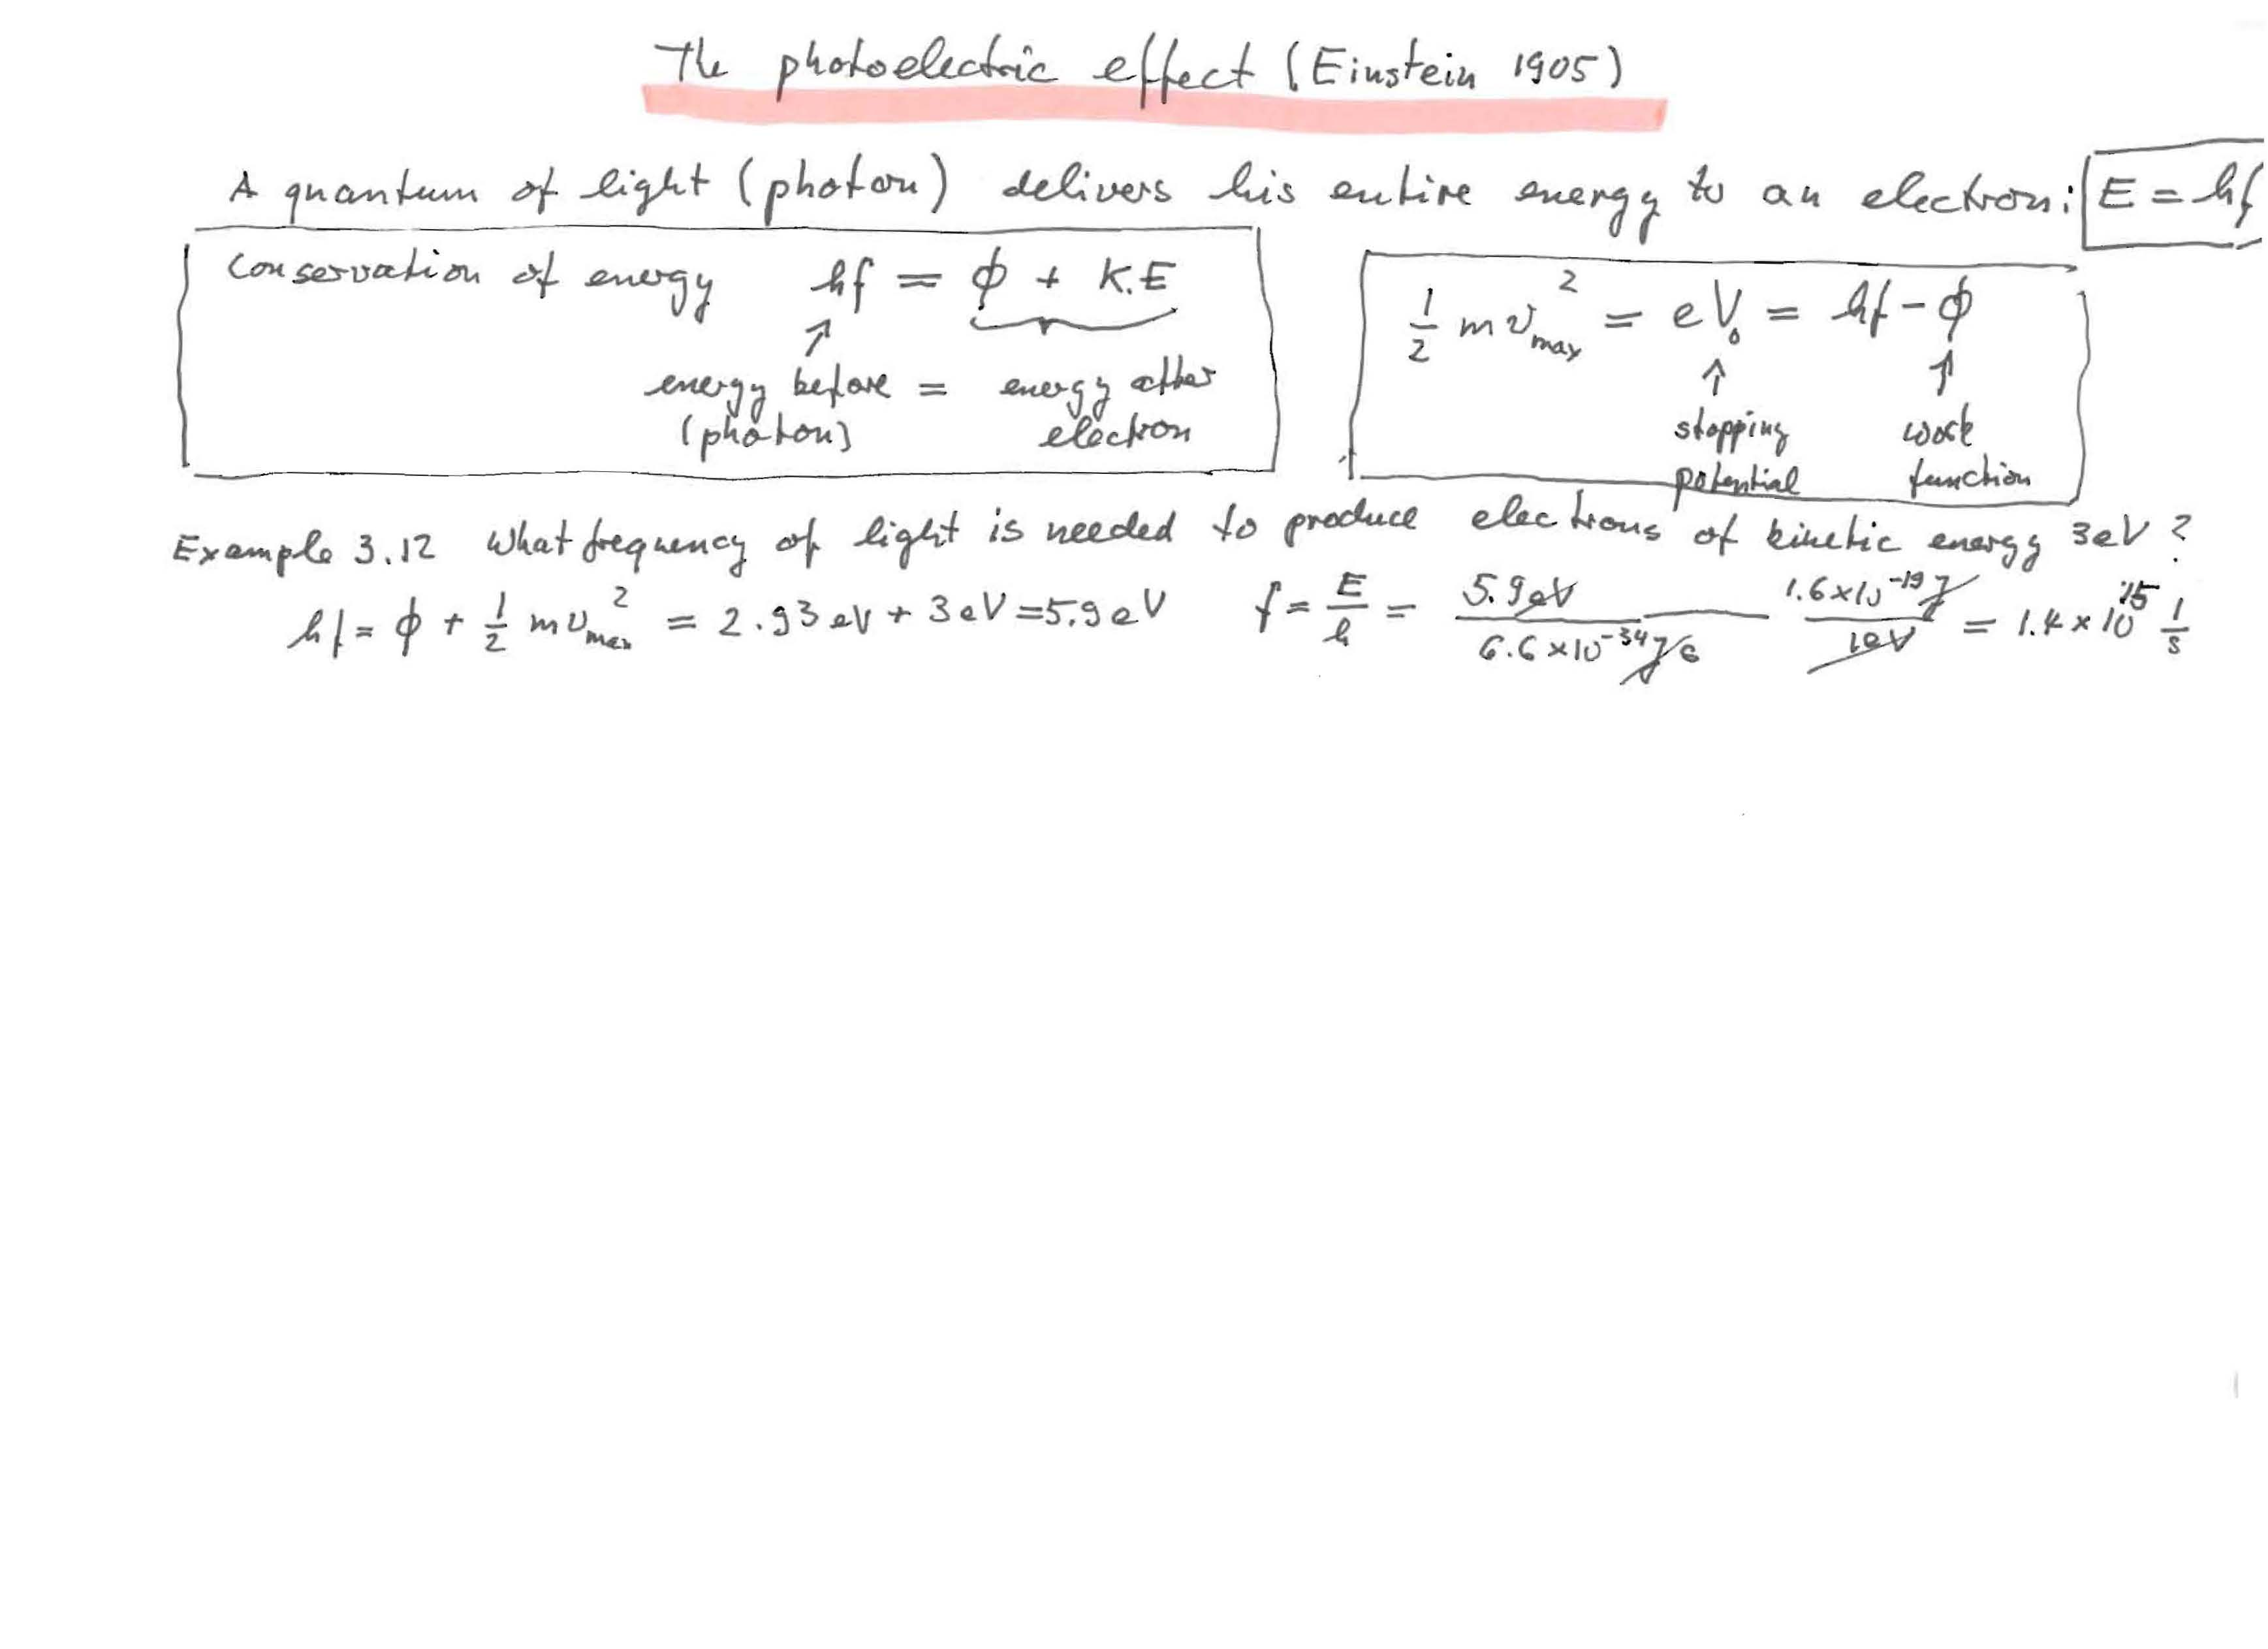 The photoelectric effect (Einstein 1905)
A quantum of light (photon) delivers his entire energy to an electron: E = hf
Conservation of energy hf = ϕ + K.E
↑
energy before = energy after
(photon) electron
1/2 m v_max^2 = eV₀ = hf - ϕ
↑ ↑
stopping work
potential function
Example 3.12 What frequency of light is needed to produce electrons of kinetic energy 3eV ?
hf = ϕ + 1/2 m v_max^2 = 2.93 eV + 3 eV = 5.9 eV f = E/h = 5.9 eV / 6.6 x 10^-34 J s 1.6 x 10^-19 J / 1eV = 1.4 x 10^15 1/s